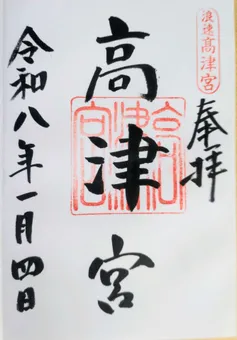 浪速高津宮
奉拝
高津宮
高津宮
令和八年一月四日